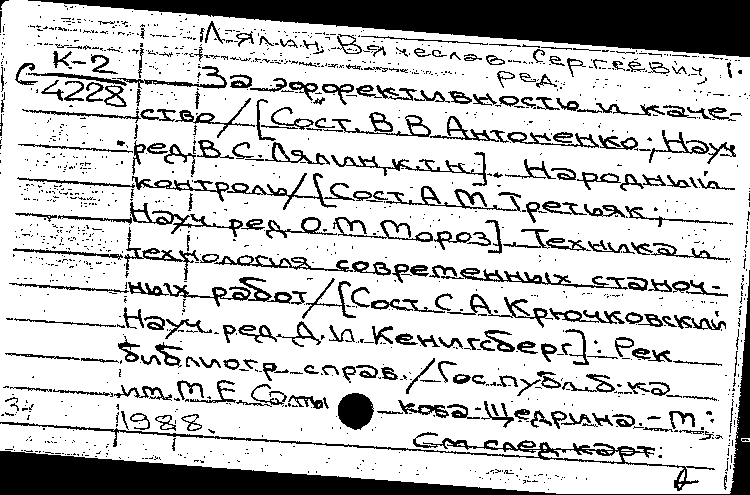 Лялин, Вячеслав Сергеевич, 1.
ред.
К-2
С 4228
За эффективность и каче-
ство/[Сост. В.В. Антоненко; Науч.
ред. В.С. Лялин, к.т.н.]. Народный
контроль/[Сост. А.М. Третьяк;
Науч. ред. О.М. Мороз]. Техника и
технология современных станоч-
ных работ/[Сост. С.А. Крючковский
Науч. ред. Д.И. Кенигсберг]: Рек.
библиогр. справ./Гос. публ. б-ка
им. М.Е. Салтыкова-Щедрина. - М.:
34 1988.
См. след. карт.